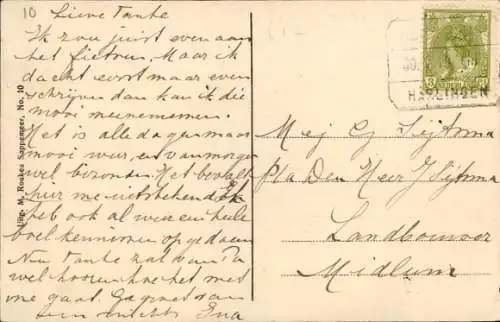 10
Lieve Tante
Ik zou juist even aan
het fietsen. Maar ik
dacht eerst maar even
schrijven dan kan ik die
mooi meenemen.
Het is alle dagen maar
mooi weer, en vanmorgen
wel bezonder. Het bevalt
hier me uitstekend. Ik
heb ook al weer een heele
boel kennissen opgedaan
Nu Tante zal van Pa
wel hooren hoe het met
me gaat. Gegroet van
Ina
Uitg. M. Roukes Sappemeer, No. 10
HARLINGEN
Mej G Sijtsma
p/a Den Heer J Sijtsma
Landbouwer
Midlum